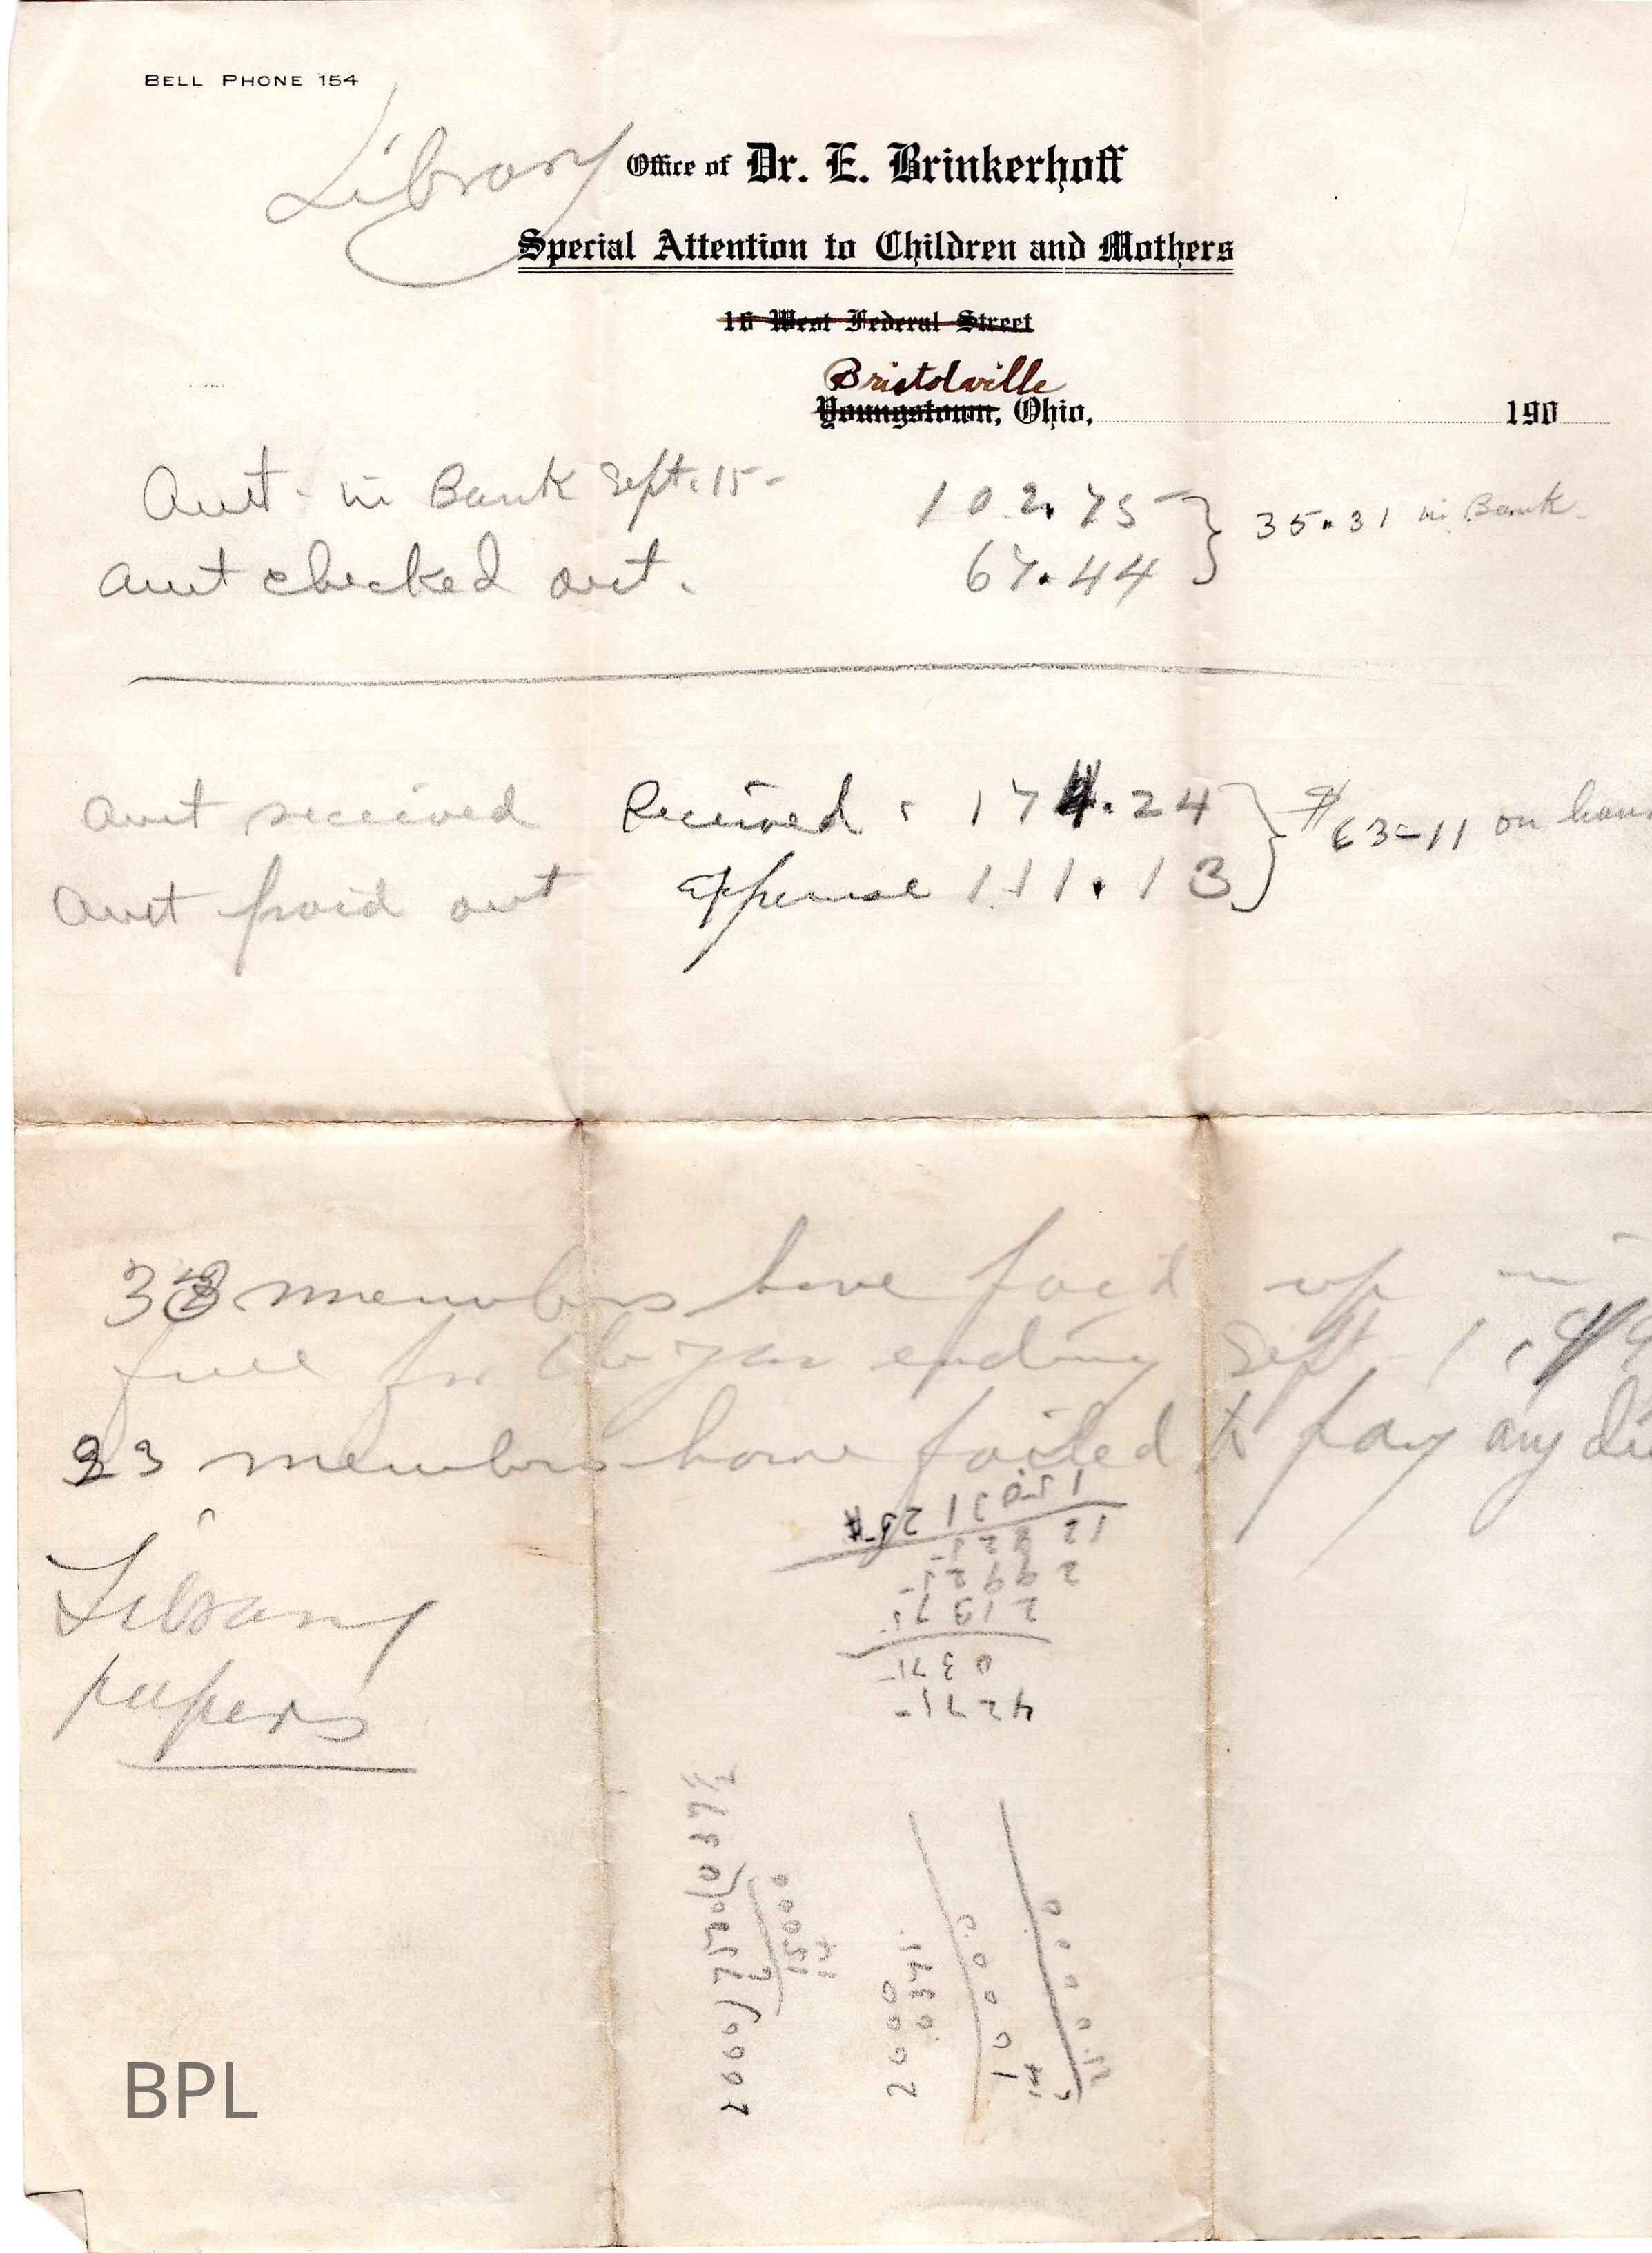 BELL PHONE 154
Library
Office of Dr. E. Brinkerhoff
Special Attention to Children and Mothers
16 West Federal Street
Bristolville
Youngstown, Ohio, 190
Amt. in Bank Sept. 15- 102.75 35.31 in Bank
Amt checked out. 67.44
Amt received Received 174.24 $63-11 on han
Amt paid out Expense 111.13
members have paid up in
full for the year ending Sept 1,
23 members have failed to pay any du
Library
papers
4275
0371
2137
15000
2000
BPL